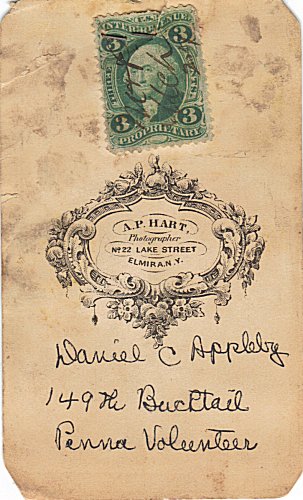 U.S. INTER. REVENUE
3 3
THREE CENTS
3 3
PROPRIETARY
A. P. HART,
Photographer
No. 22 LAKE STREET
ELMIRA, N.Y.
Daniel C Appleby
149th Bucktail
Penna Volunteer